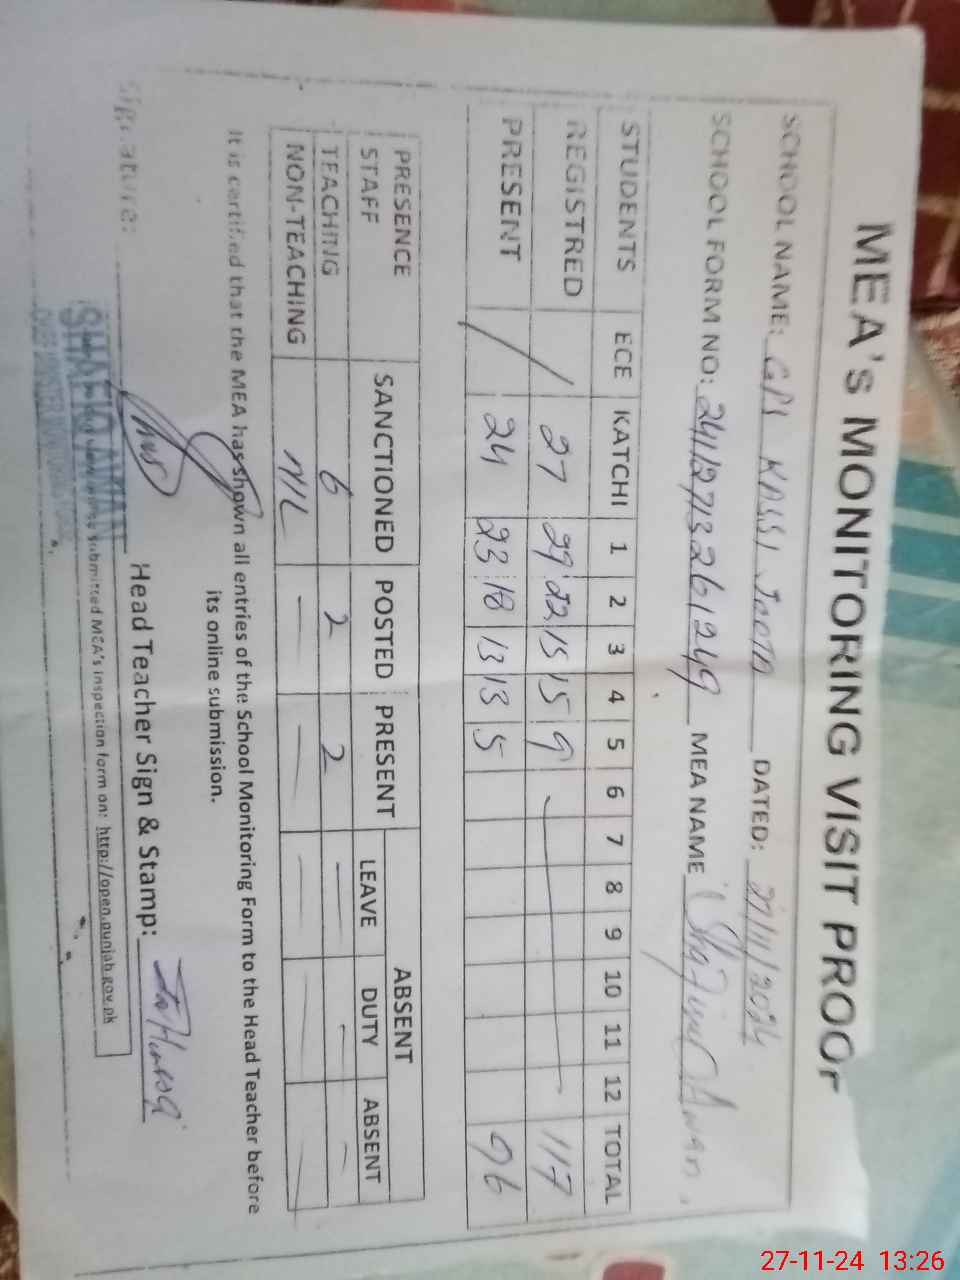 MEA's MONITORING VISIT PROOF
SCHOOL NAME: GPS KASSI DATED: 21/11/2024
SCHOOL FORM NO: 24112713261249 MEA NAME Shafiqul Awan
STUDENTS ECE KATCHI 1 2 3 4 5 6 7 8 9 10 11 12 TOTAL
REGISTRED / 27 29 22 15 15 9 117
PRESENT 24 23 18 13 13 5 96
PRESENCE STAFF SANCTIONED POSTED PRESENT ABSENT
LEAVE DUTY ABSENT
TEACHING 6 2 2 — — —
NON-TEACHING NIL — — — — —
It is certified that the MEA has shown all entries of the School Monitoring Form to the Head Teacher before
its online submission.
Signature: Head Teacher Sign & Stamp:
SHAFIQ AWAN
submitted MEA's inspection form on: http://open.punjab.gov.pk
27-11-24 13:26